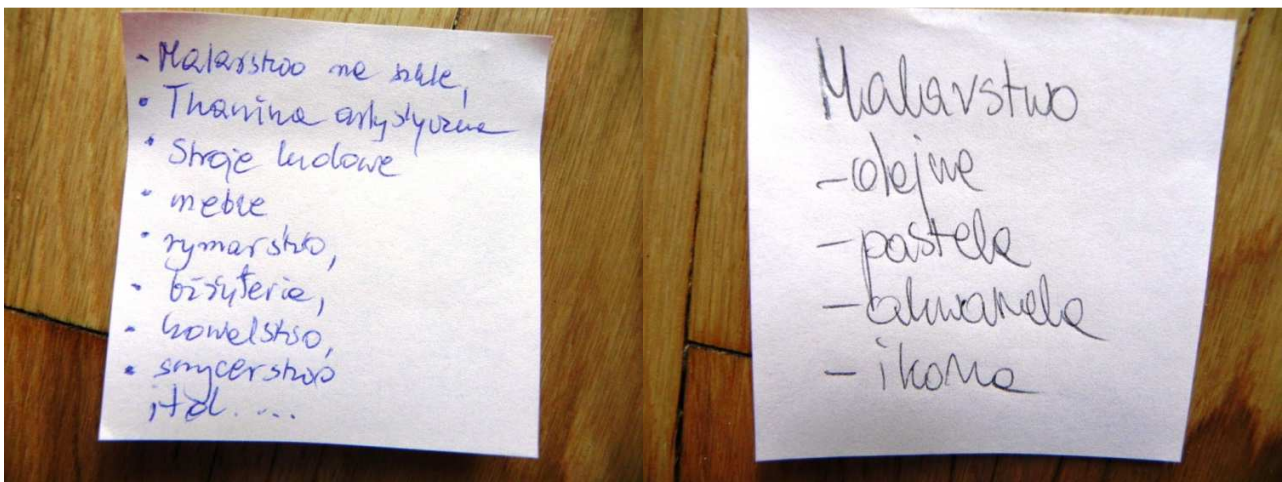 - Malarstwo na szkle,
• Tkanina artystyczna
• Stroje ludowe
• meble
• rymarstwo,
• biżuteria,
• kowalstwo,
• snycerstwo
itd. ...
Malarstwo
- olejne
- pastele
- akwarela
- ikona